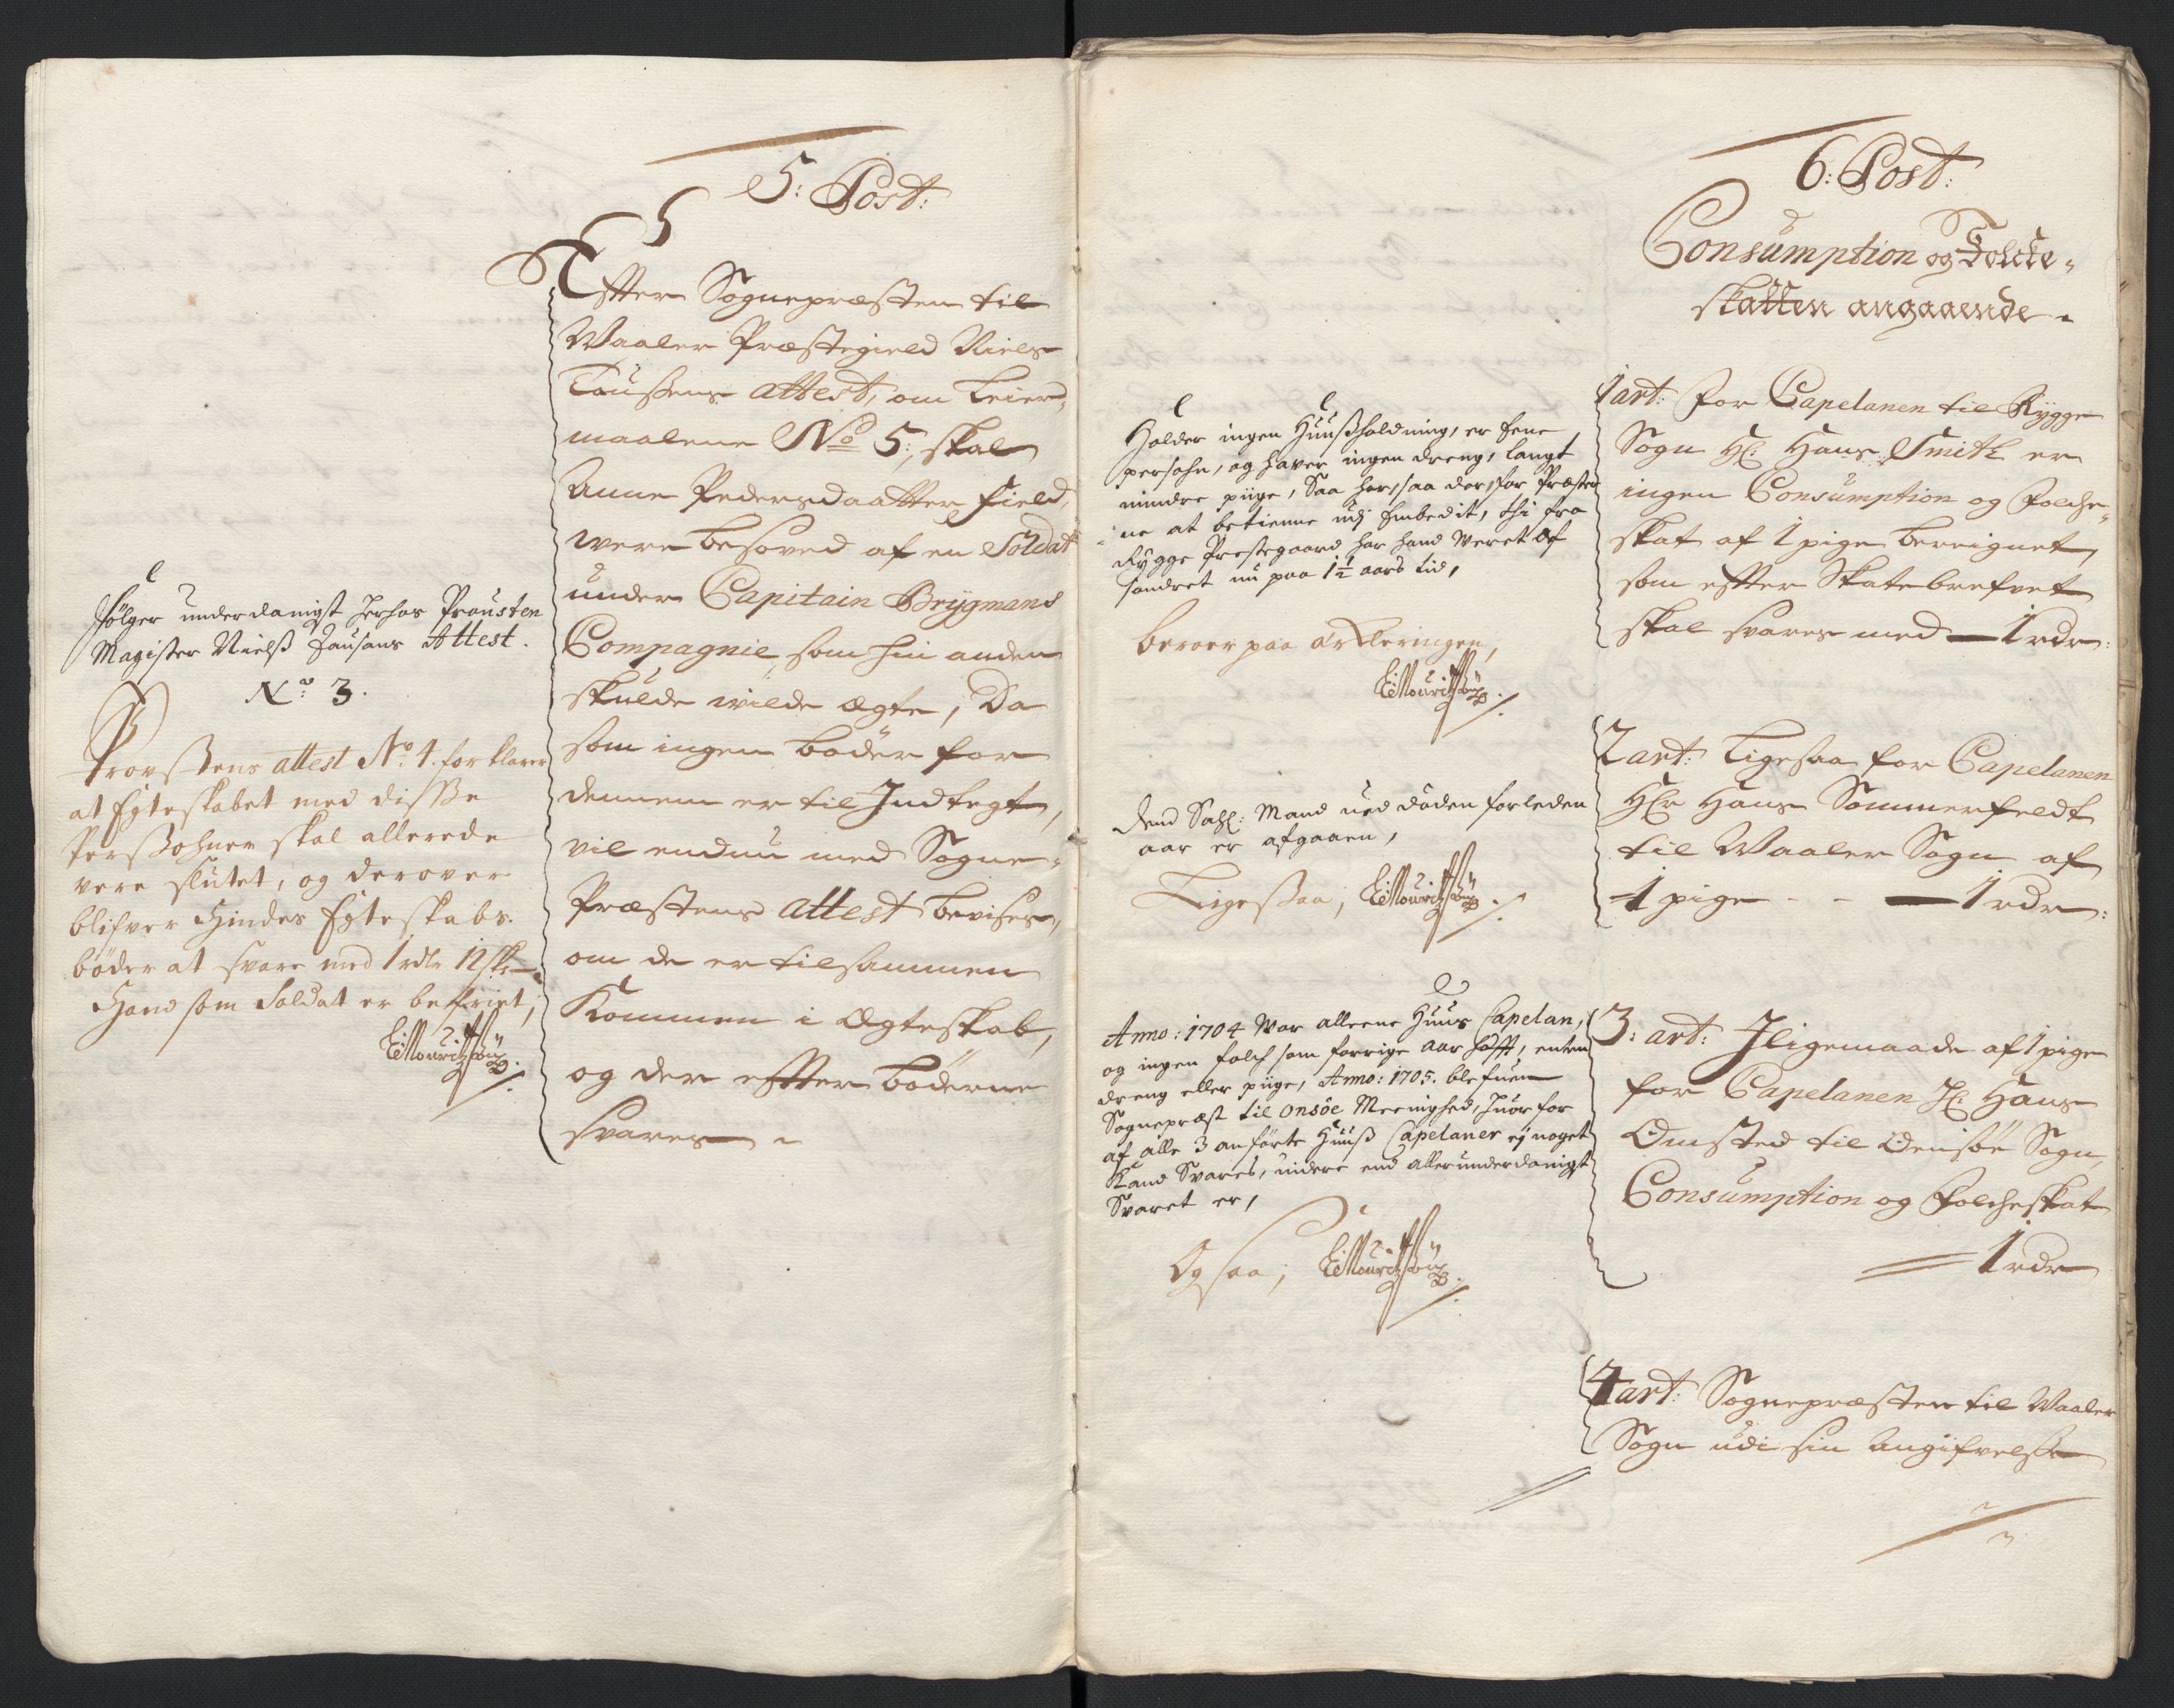 5: Post:
Efter Sognepræsten til
Waaler Præstegield Niels
Taussens attest, om Leier-
maalene No 5:, skal
Anne Pedersdaatter Field,
were besoved af en Soldat
under Capitain Brygmans
Compagnie, som hun anden
skulde wilde ægte, Da
som ingen bøder for
dennem er til Indtegt,
vil endnu med Sogne-
Præstens attest bevises,
om de er tilsammen
Kommen i Ægteskab,
og der efter bøderne
svares
følger underdanigst herhos Prousten
Magister Nielss Tausans Attest.
No: 3.
Provstens attest No: 4. forklarer
at Egteskabet med disse
Perssohner skal allerede
vere slutet, og derover
blifver Hindes Egteskabs
bøder at svare med 1 rdr 12 s
Hand som Soldat er befriet,
6: Post:
Consumption og Folcke-
skatten angaaende
1 art: For Capelanen til Rygge
Sogn Hr: Hans Smith er
ingen Consumption og Folche-
skat af 1 pige bereignet,
som efter Skatebrefvet
skal svares med — 1 rdr:
Holder ingen Huussholdning, er Ene
persohn, og haver ingen dreng, langt
mindre piige, Saa her, saa der, for Præster
ne at betienne udj Embedit, thi fra
Rygge Prestegaard har hand veret af
sondret nu paa 1½ aars tid,
beroer paa Erkleringen,
2 art: Ligesaa for Capelanen
Hr Hans Sommerfeldt
til Waaler Sogn af
1 pige - - — 1 rdr:
Dend Sahl: Mand ued døden forleden
aar er afgaaen,
Ligessaa,
3: art: Iligemaade af 1 pige
for Capelanen Hr: Hans
Omsted til Onsøe Sogn,
Consumption og Folcheskat
1 rdr
Anno: 1704 War alleene Huus Capelan,
og ingen folch som forrige aar hafft, enten
dreng eller piige, Anno: 1705. blefuen
Sognepræst til Onsøe Meenighed, huorfor
af alle 3 anførte Huuss Capelaner ej noget
Kand Svares, uidere end allerunderdanigst
Svaret er,
Og saa,
4 art: Sognepræsten til Waaler
Sogn udi sin Angifvelse